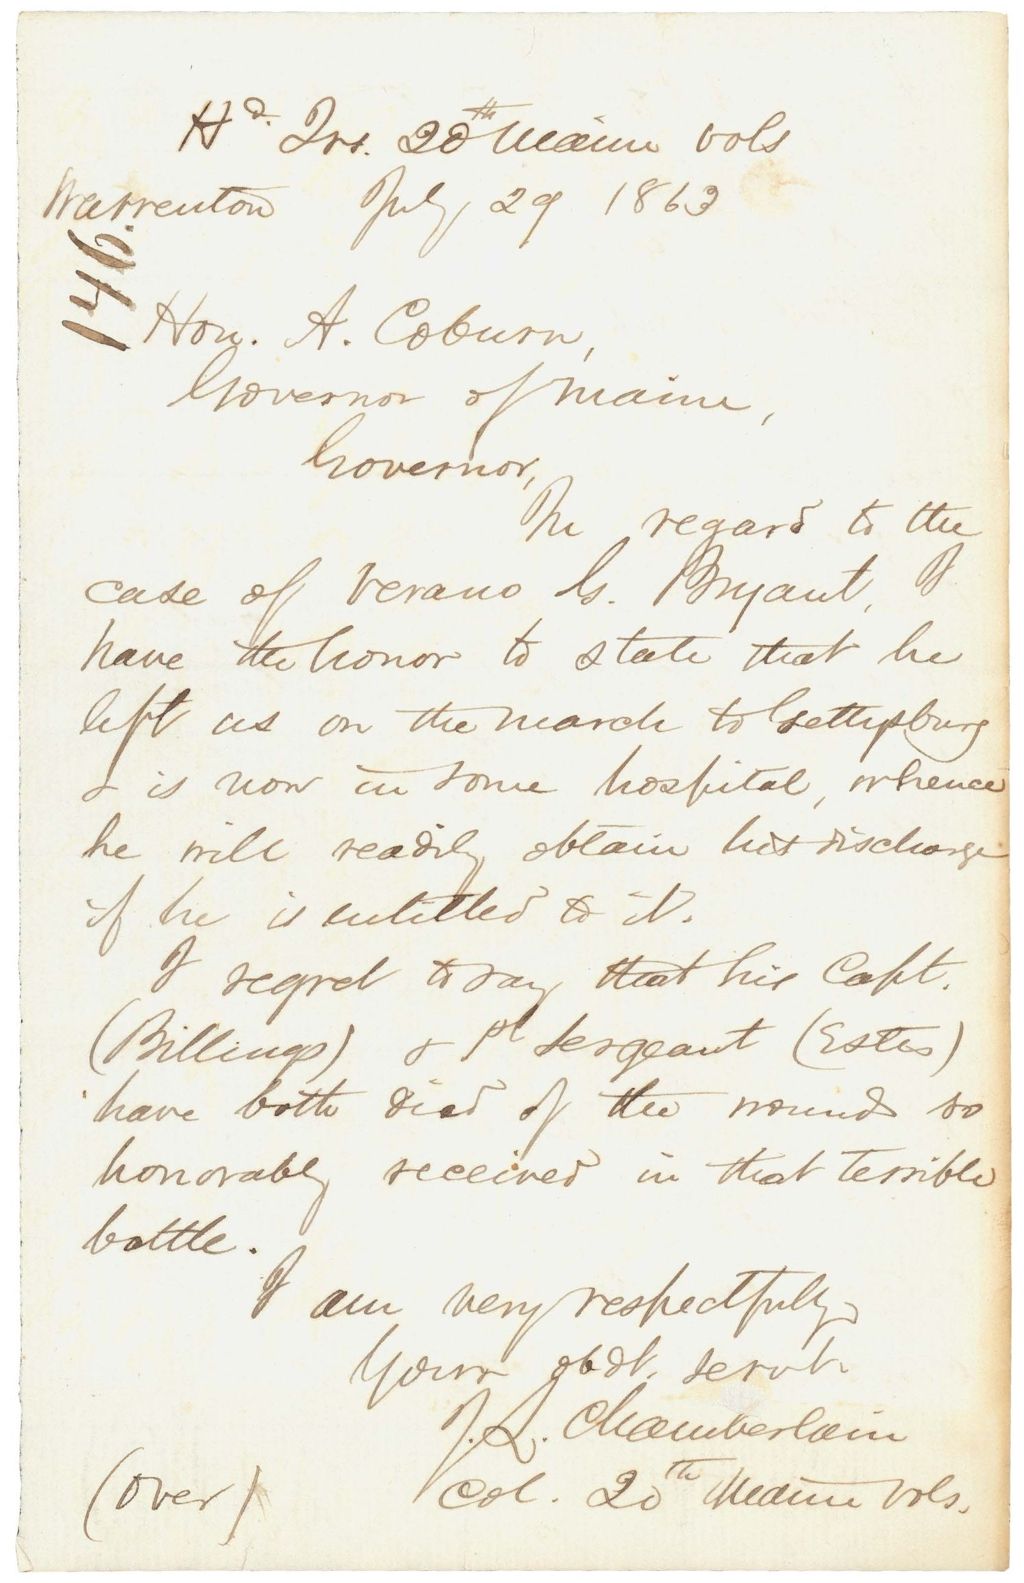 Hd. Qrs. 20th Maine Vols
Warrenton July 29 1863
146.
Hon. A. Coburn,
Governor of Maine,
Governor,
In regard to the
case of Verano G. Bryant, I
have the honor to state that he
left us on the march to Gettysburg
& is now in some hospital, whence
he will readily obtain his discharge
if he is entitled to it.
I regret to say that his Capt.
(Billings) & 1st Sergeant (Estes)
have both died of the wounds so
honorably received in that terrible
battle.
I am very respectfully
Your obdt. servt.
J. L. Chamberlain
Col. 20th Maine Vols.
(over)